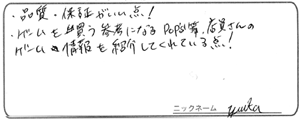 ・品質・保証がいい点!
・ゲームを買う参考になるPOP等、店員さんの
ゲーム情報を紹介してくれている点!
ニックネーム yuika